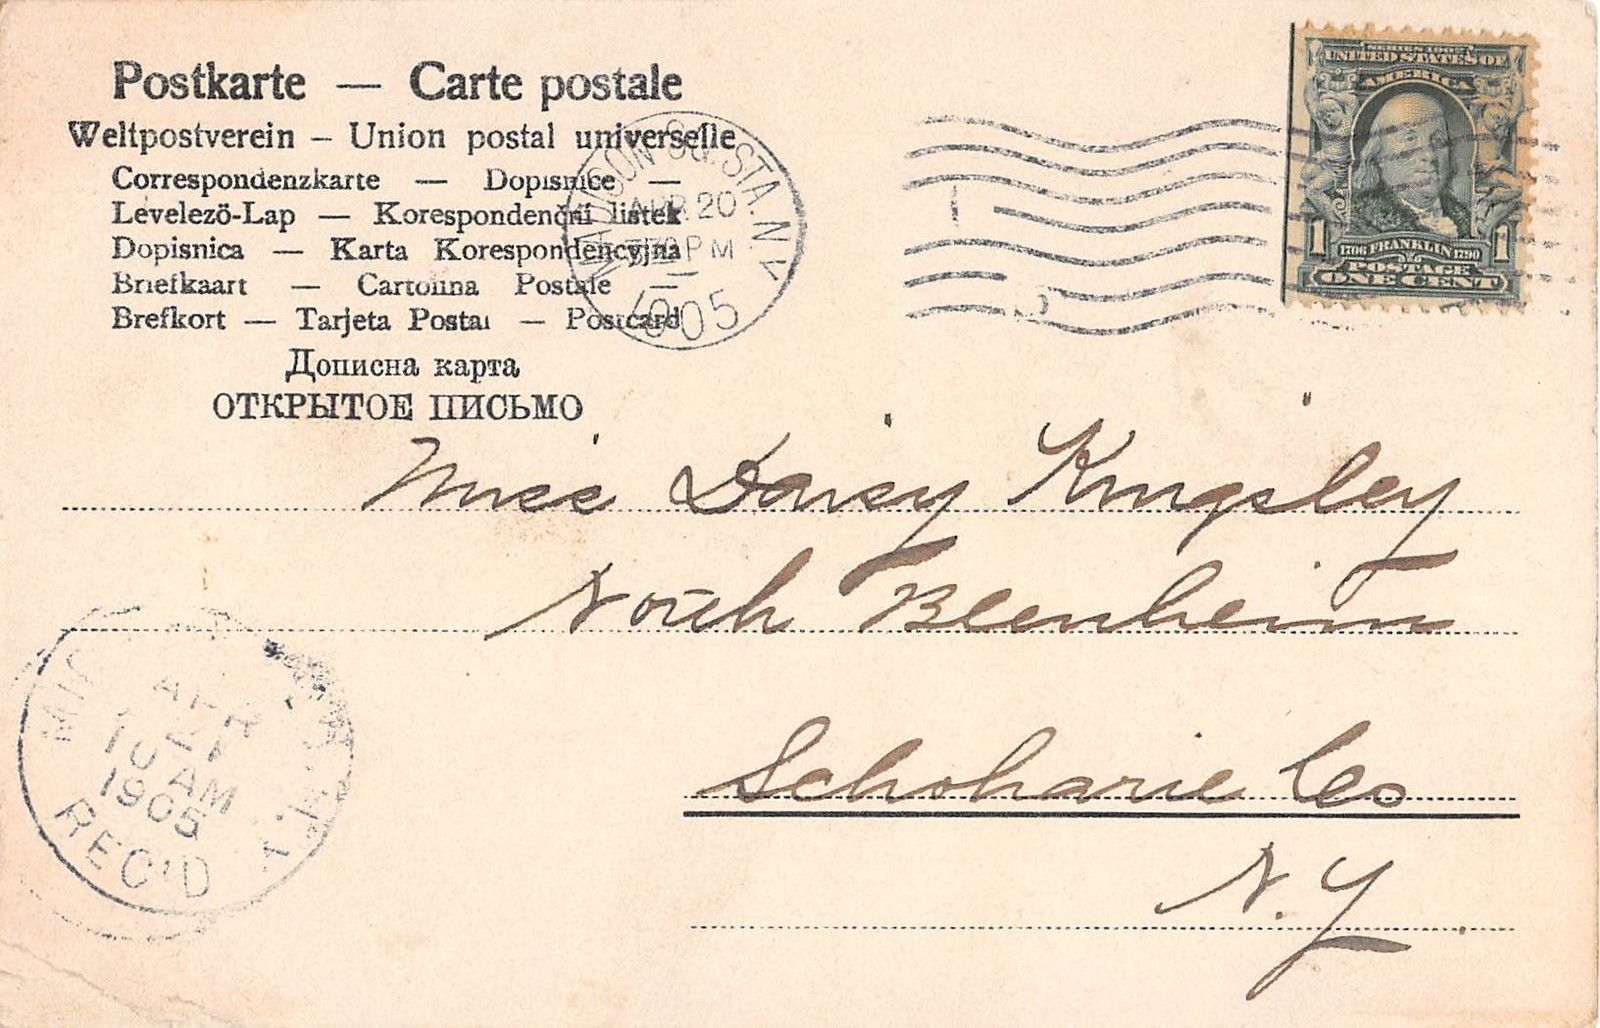 Postkarte — Carte postale
Weltpostverein – Union postal universelle
Correspondenzkarte — Dopisnice —
Levelező-Lap — Korespondenční listek
Dopisnica — Karta Korespondencyjna
Briefkaart — Cartolina Postale —
Brefkort — Tarjeta Postal — Postcard
Дописна карта
ОТКРЫТОЕ ПИСЬМО
MADISON SQ. STA. N.Y.
APR 20
PM
1905
SERIES 1902
UNITED STATES OF
AMERICA
1 1706 FRANKLIN 1790 1
POSTAGE
ONE CENT
Miss Daisy Kingsley
North Blenheim
Schoharie Co
N.Y.
APR
21
10 AM
1905
REC'D